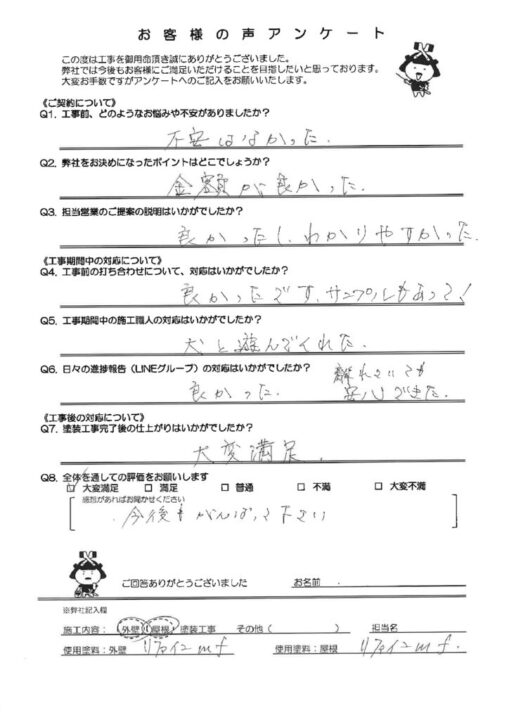 お客様の声アンケート
この度は工事を御用命頂き誠にありがとうございました。
弊社では今後もお客様にご満足いただけることを目指したいと思っております。
大変お手数ですがアンケートへのご記入をお願いいたします。
《ご契約について》
Q1. 工事前、どのようなお悩みや不安がありましたか？
不安はなかった.
Q2. 弊社をお決めになったポイントはどこでしょうか？
金額が良かった.
Q3. 担当営業のご提案の説明はいかがでしたか？
良かったし、わかりやすかった.
《工事期間中の対応について》
Q4. 工事前の打ち合わせについて、対応はいかがでしたか？
良かったです、サンプルもあって!
Q5. 工事期間中の施工職人の対応はいかがでしたか？
犬と遊んでくれた.
Q6. 日々の進捗報告（LINEグループ）の対応はいかがでしたか？
良かった. 離れていても
安心できた.
《工事後の対応について》
Q7. 塗装工事完了後の仕上がりはいかがでしたか？
大変満足.
Q8. 全体を通しての評価をお願いします
□ 大変満足 □ 満足 □ 普通 □ 不満 □ 大変不満
感想があればお聞かせください
今後もがんばって下さい
ご回答ありがとうございました お名前
※弊社記入欄
施工内容：外壁・屋根・塗装工事 その他（ ） 担当名
使用塗料：外壁 リファインmf 使用塗料：屋根 リファインmf.